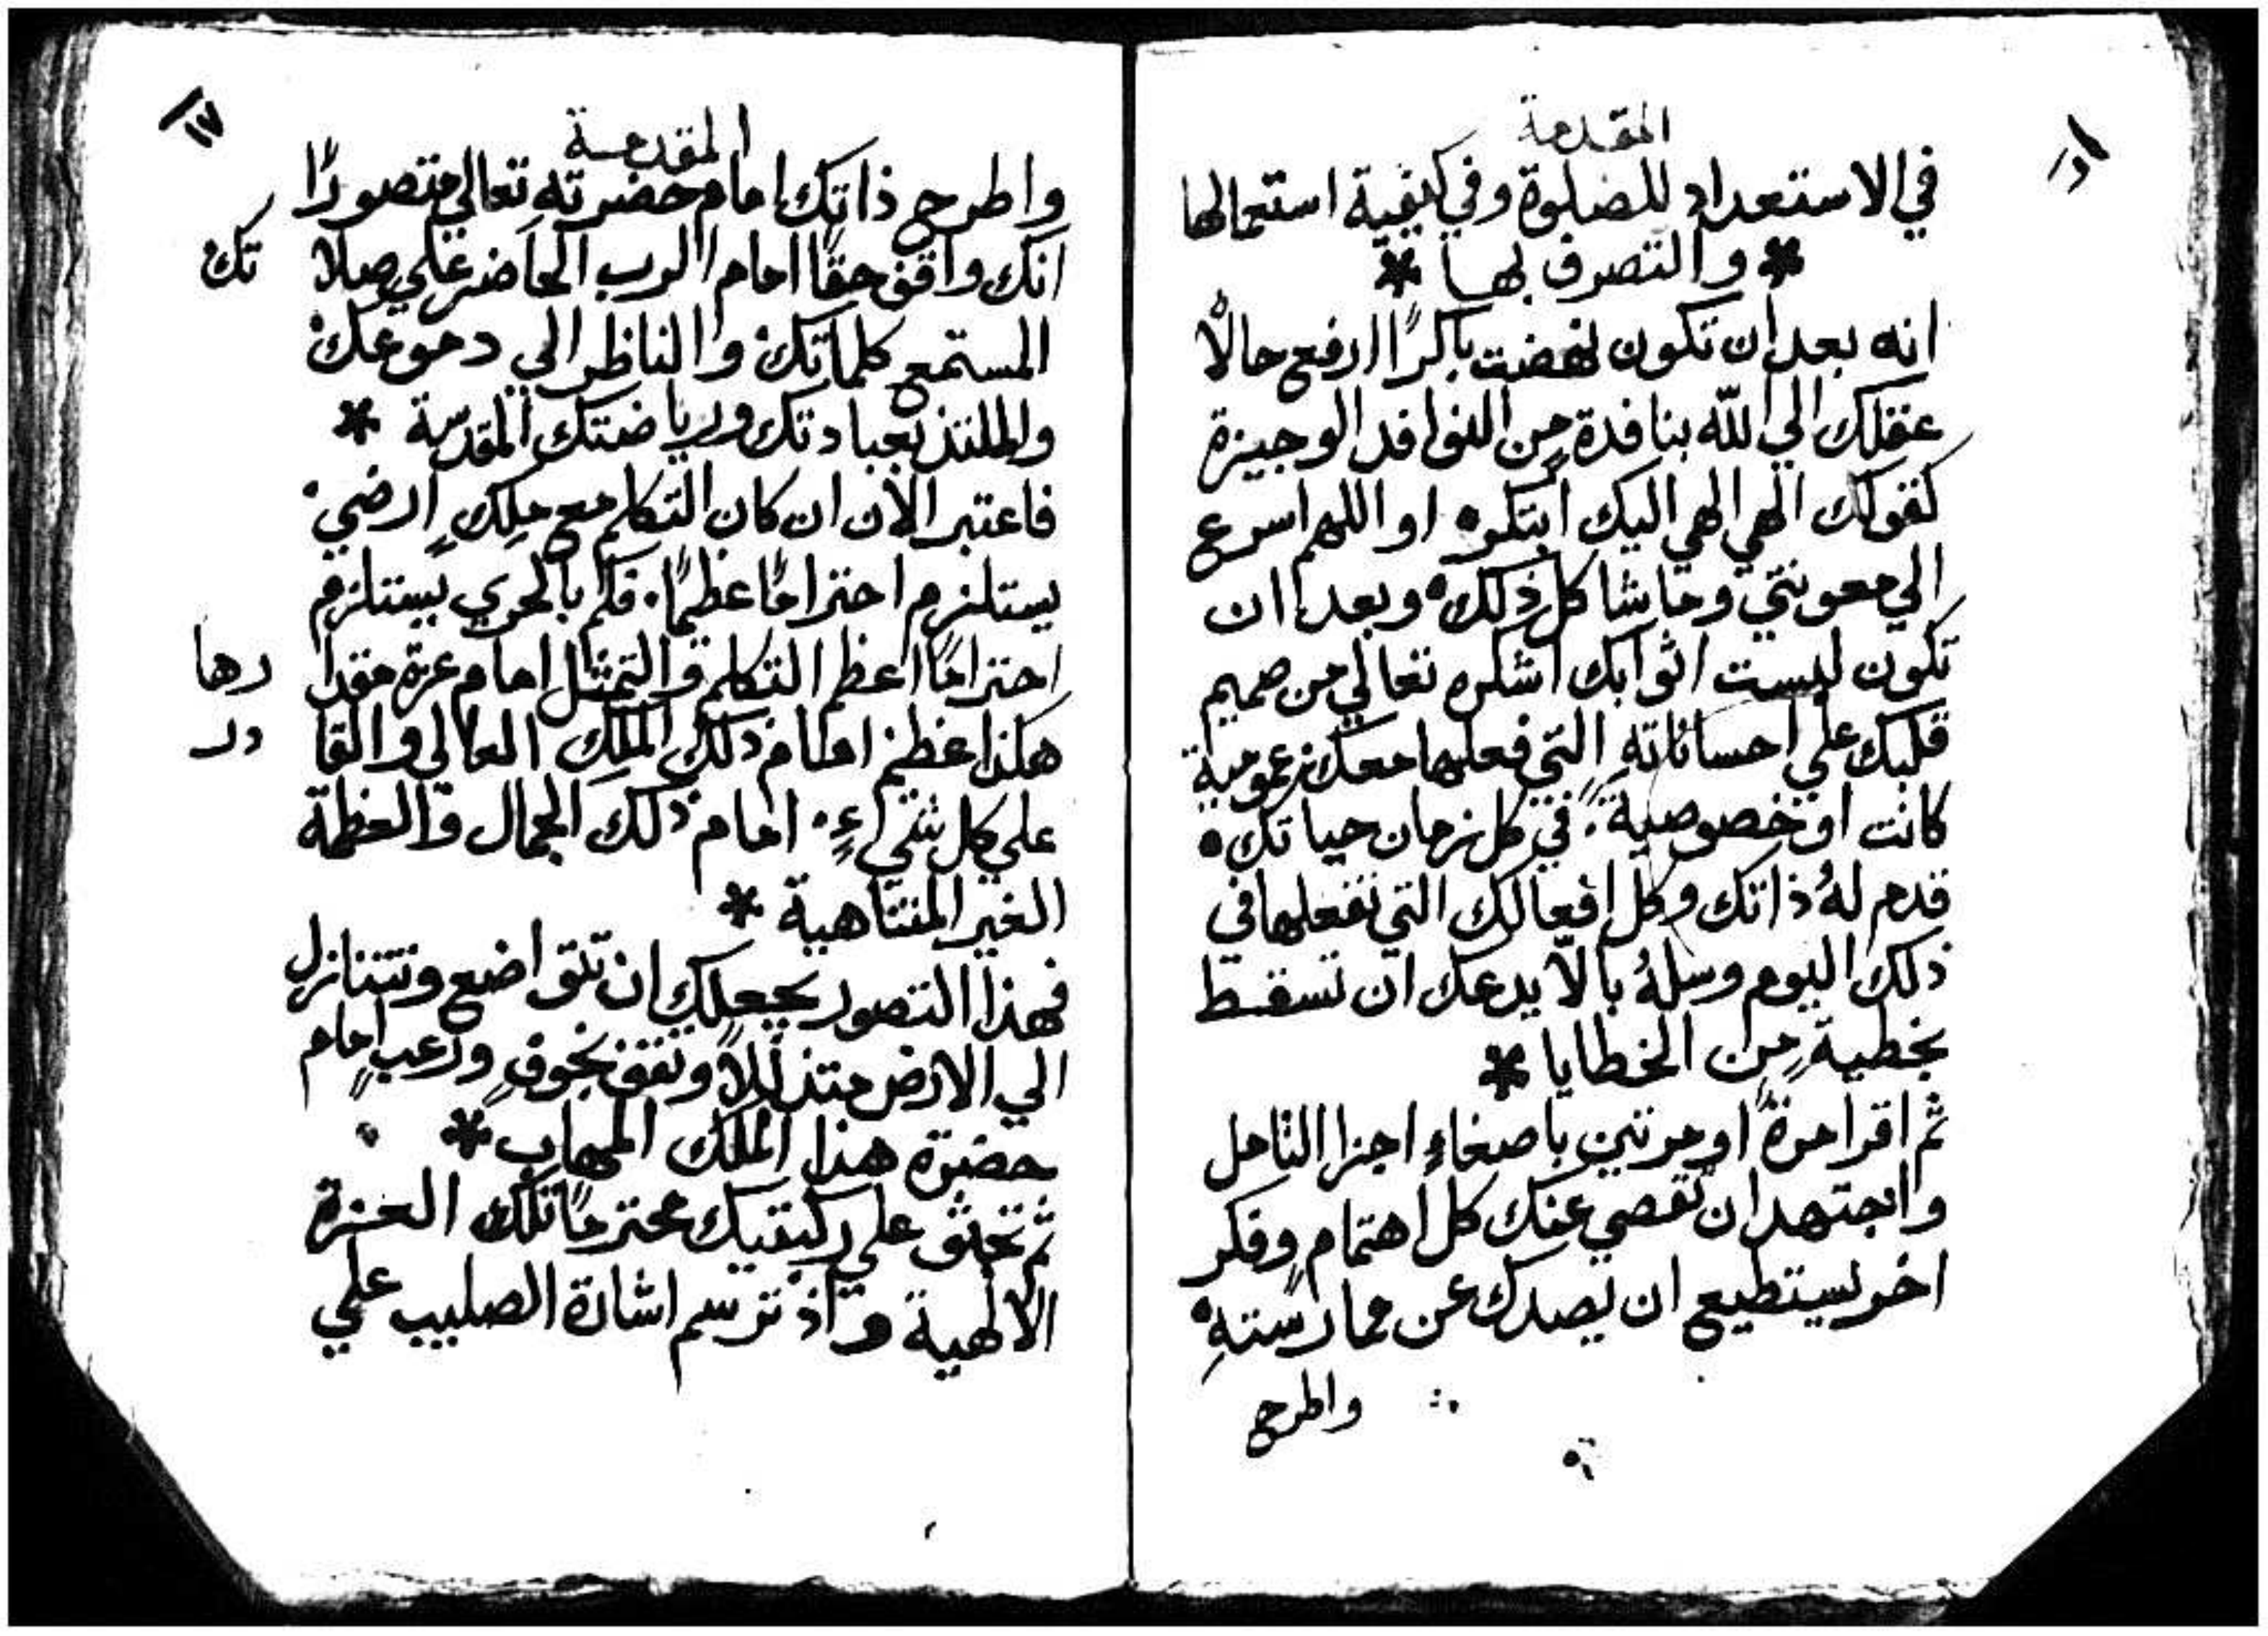 المقدمة
في الاستعداد للصلوة وفي كيفية استعمالها
* والتصرف بها *
انه بعد ان تكون نهضت باكرًا ارفع حالًا
عقلك الي الله بنافدة من النوافد الوجيزة
كقولك الهي الهي اليك ابتكره او اللهم اسرع
الي معونتي وما شاكل ذلك ٠ وبعد ان
تكون لبست اثوابك اشكره تعالي من صميم
قلبك علي احساناتهِ التي فعلها معك عمومية
كانت او خصوصيةً. في كل زمان حياتك ٠
قدم لهُ ذاتك وكل افعالك التي تفعلها في
ذلك اليوم وسلهُ بالّا يدعك ان تسقط
بخطيةٍ من الخطايا *
ثم اقرا مرةً او مرتين باصغاءٍ اجزا التامل
واجتهد ان تقصي عنك كل اهتمامٍ وفكر
اخر يستطيع ان يصدك عن ممارستهِ ٠
واطرح
١٧
المقدمة
واطرح ذاتك امام حضرته تعالي متصورًا
انك واقف حقًا امام الرب الحاضر علي صلاتك
المستمع كلماتك والناظر الي دموعك
والملتذ بعبادتك ورياضتك المقدسة *
فاعتبر الان ان كان التكلم مع ملكٍ ارضي
يستلزم احترامًا عظيمًا. فكم بالحري يستلزم
احترامًا اعظم التكلم والتمثل امام عزة مقدارها
هكذا عظيم امام ذلك الملك العالي والقادر
علي كل شيءٍ. امام ذلك الجمال والعظمة
الغير المتناهية *
فهذا التصور يجعلك ان تتواضع وتتنازل
الي الارض متذللًا وتقف بخوفٍ ورعبٍ امام
حضرة هذا الملك المهاب *
ثم تجثو علي ركبتيك محترمًا تلك العزة
الالهية واذ ترسم اشارة الصليب علي